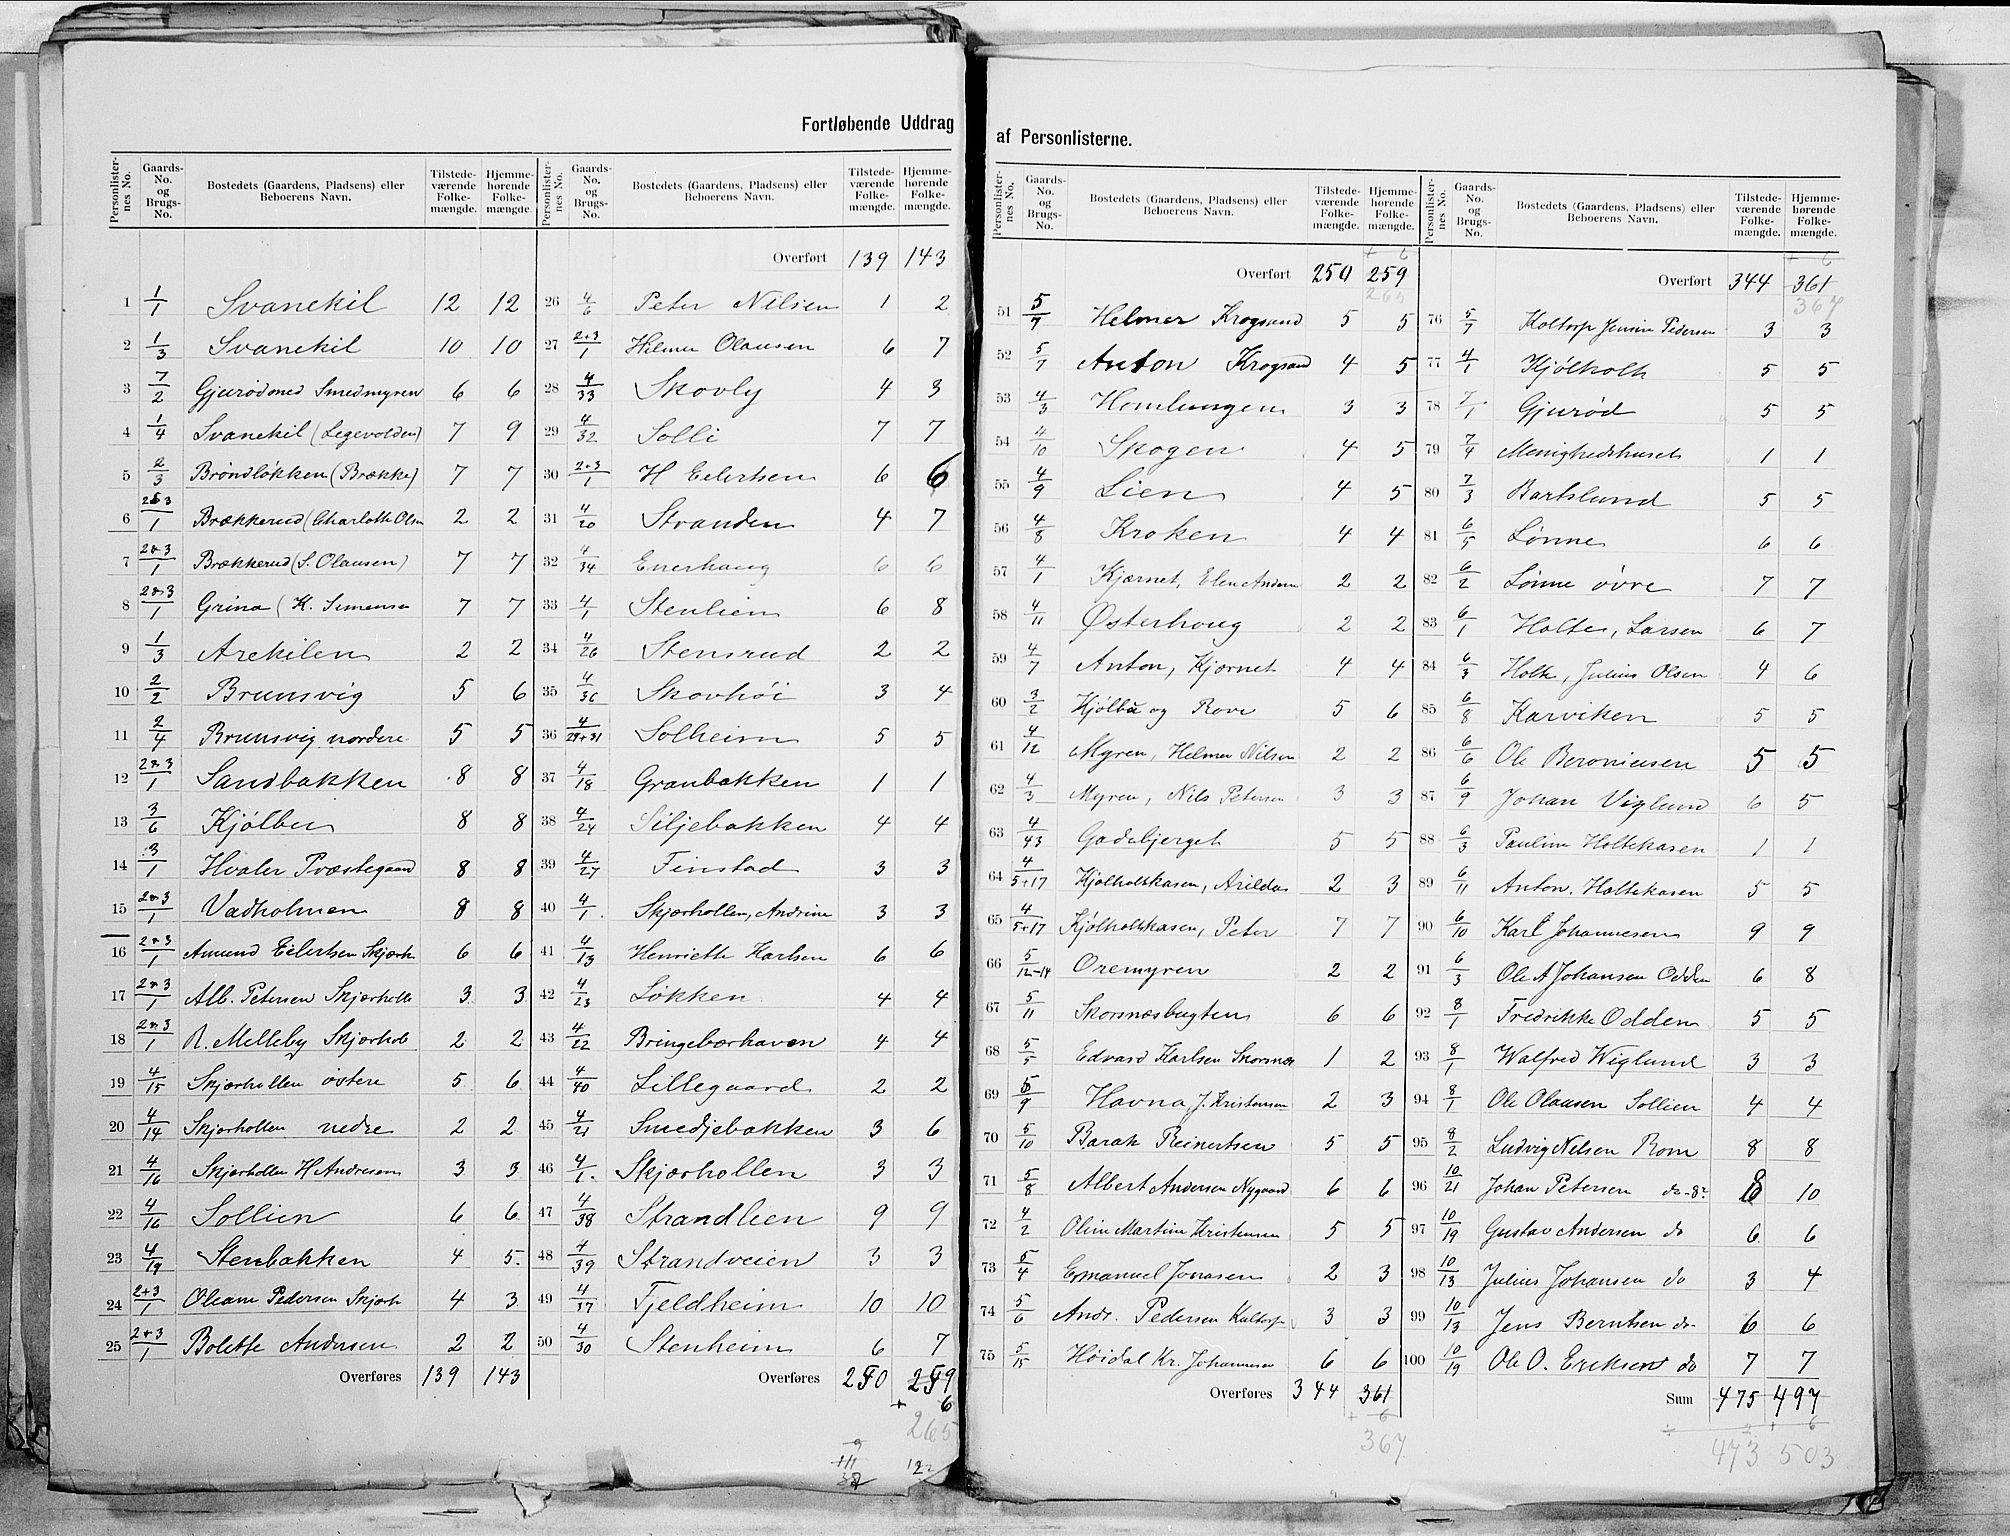 Fortløbende Uddrag af Personlisterne.
Personlisternes No. Gaards-No. og Brugs-No. Bostedets (Gaardens, Pladsens) eller Beboerens Navn. Tilstedeværende Folkemængde. Hjemmehørende Folkemængde.
1 1/1 Svanekil 12 12
2 1/3 Svanekil 10 10
3 7/2 Gjurødoned Smedmyren 6 6
4 1/4 Svanekil (Legevolden) 7 9
5 2/3 Brøndløkken (Brække) 7 7
6 2&3/1 Brækkerud (Charlotte Olsn 2 2
7 2&3/1 Brækkerud (S. Olausen) 7 7
8 2&3/1 Grina (K. Simensen 7 7
9 1/3 Arekilen 2 2
10 2/2 Brunsvig 5 6
11 2/4 Brunsvig nordere 5 5
12 2&3/1 Sandbakken 8 8
13 3/6 Kjølbu 8 8
14 3/1 Hvaler Præstegaard 8 8
15 2&3/1 Vadholmen 8 8
16 2+3/1 Amund Eilertsen Skjærh 6 6
17 2&3/1 Alb. Petersen Skjærholle 3 3
18 2&3/1 R. Melleby Skjærhol 2 2
19 4/15 Skjærhollen østere 5 6
20 4/14 Skjærhollen nedre 2 2
21 4/16 Skjærhollen H Andresen 3 3
22 4/16 Sollien 6 6
23 4/19 Stenbakken 4 5
24 2+3/1 Oleane Pedersen Skjærh 4 3
25 2+3/1 Bolette Andersen 2 2
Overføres 139 143
Personlisternes No. Gaards-No. og Brugs-No. Bostedets (Gaardens, Pladsens) eller Beboerens Navn. Tilstedeværende Folkemængde. Hjemmehørende Folkemængde.
Overført 139 143
26 4/6 Peter Nilsen 1 2
27 2+3/1 Hilmer Olausen 6 7
28 4/33 Skovly 4 3
29 4/32 Solli 7 7
30 2+3/1 H Eilertsen 6 6
31 4/20 Stranden 4 7
32 4/34 Enerhaug 6 6
33 4/1 Stenlien 6 8
34 4/26 Stensrud 2 2
35 4/36 Skovhöi 3 4
36 4/29+31 Solheim 5 5
37 4/18 Granbakken 1 1
38 4/24 Siljebakken 4 4
39 4/27 Finstad 3 3
40 4/1 Skjærhollen, Andrine 3 3
41 4/13 Henriette Karlsen 6 6
42 4/23 Løkken 4 4
43 4/22 Bringebærhaven 4 4
44 4/40 Lillegaard 2 2
45 4/21 Smedjebakken 3 6
46 4/1 Skjærhollen 3 3
47 4/38 Strandlien 9 9
48 4/39 Strandveien 3 3
49 4/37 Fjeldheim 10 10
50 4/30 Stenheim 6 7
Overføres 250 259
+ 6
265
9
111 122
Personlisternes No. Gaards-No. og Brugs-No. Bostedets (Gaardens, Pladsens) eller Beboerens Navn. Tilstedeværende Folkemængde. Hjemmehørende Folkemængde.
+ 6
Overført 250 259
265
51 5/7 Helmer Krogsand 5 5
52 5/7 Anton Krogsand 4 5
53 4/3 Homlungen 3 3
54 4/10 Skogen 4 5
55 4/9 Lien 4 5
56 4/8 Kroken 4 4
57 4/1 Kjærnet, Elen Andersn 2 2
58 4/11 Østerhoug 2 2
59 4/7 Anton, Kjærnet 4 4
60 3/2 Kjølbu og Rove 5 6
61 4/12 Myren, Helmer Nilsen 2 2
62 4/3 Myren, Nils Petersen 3 3
63 4/43 Gadebjerget 5 5
64 4/5+17 Kjølholtkasen, Arilda 2 3
65 4/5+17 Kjølholtkasen, Peter 7 7
66 5/12-14 Oremyren 2 2
67 5/11 Skorsnæsbugten 6 6
68 5/5 Edvard Karlsen Skorsnæs 1 2
69 5/9 Havna, J. Kristensen 2 3
70 5/10 Barak Reinertsen 5 5
71 5/8 Albert Andersen Nygaard 6 6
72 4/2 Oline Martine Kristensen 5 5
73 5/4 Emanuel Jonasen 2 3
74 5/6 Andr. Pedersen Koltorp 3 3
75 5/15 Høidal Kr. Johannesen 6 6
Overføres 344 361
+ 6
367
Personlisternes No. Gaards-No. og Brugs-No. Bostedets (Gaardens, Pladsens) eller Beboerens Navn. Tilstedeværende Folkemængde. Hjemmehørende Folkemængde.
+ 6
Overført 344 361
367
76 5/7 Koltorp Jensine Pedersen 3 3
77 4/1 Kjølholt 5 5
78 7/1 Gjurød 5 5
79 7/4 Menighedshuset 1 1
80 7/3 Bartslund 5 5
81 6/5 Lønne 6 6
82 6/2 Lønne øvre 7 7
83 6/1 Holte, Larsen 6 7
84 6/3 Holte, Julius Olsen 4 6
85 6/8 Karviken 5 5
86 6/6 Ole Beroniusen 5 5
87 6/9 Johan Viglund 6 5
88 6/3 Pauline Holtekasen 1 1
89 6/11 Anton. Holtekasen 5 5
90 6/10 Karl Johannesen 9 9
91 6/3 Ole A Johansen Odden 6 8
92 8/1 Fredrikke Odden 5 5
93 8/1 Walfred Wiglund 3 3
94 8/1 Ole Olausen Sollien 4 4
95 8/2 Ludvig Nelsen Rom 8 8
96 10/21 Johan Petersen do 8 10
97 10/19 Gustav Andersen do 6 6
98 10/13 Julius Johansen do 3 4
99 10/13 Jens Berntsen do 6 6
100 10/19 Ole O. Eriksen do 7 7
Sum 475 497
÷ 2 + 6
473 503